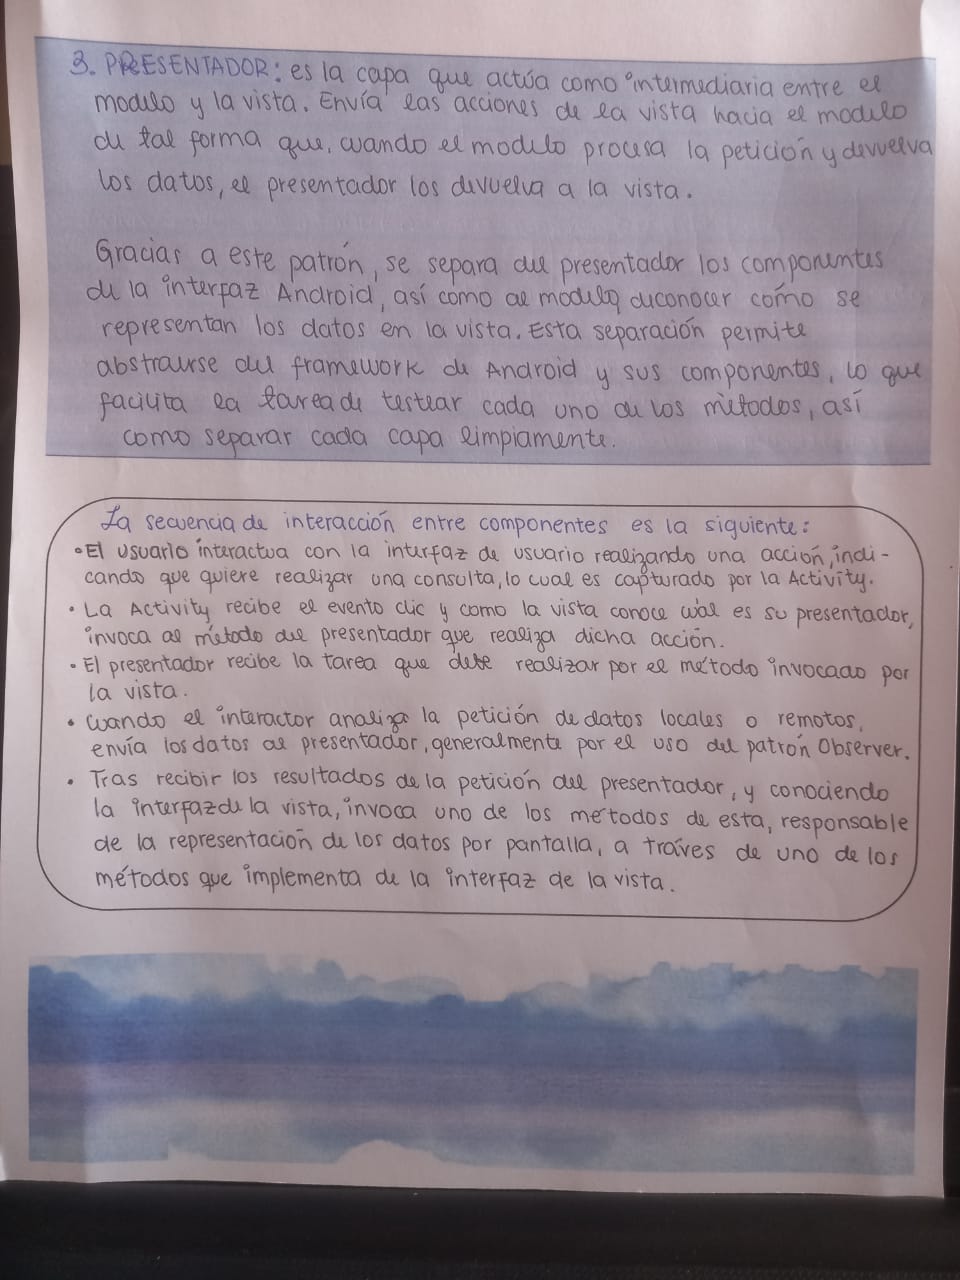 3. PRESENTADOR: es la capa que actúa como intermediaria entre el
modelo y la vista. Envía las acciones de la vista hacia el modelo
de tal forma que, cuando el modelo procesa la petición y devuelva
los datos, el presentador los devuelva a la vista.
Gracias a este patrón, se separa del presentador los componentes
de la interfaz Android, así como al modelo desconocer cómo se
representan los datos en la vista. Esta separación permite
abstraerse del framework de Android y sus componentes, lo que
facilita la tarea de testear cada uno de los métodos, así
como separar cada capa limpiamente.
La secuencia de interacción entre componentes es la siguiente:
• El usuario interactua con la interfaz de usuario realizando una acción, indi-
cando que quiere realizar una consulta, lo cual es capturado por la Activity.
• La Activity recibe el evento clic y como la vista conoce cuál es su presentador,
invoca al método del presentador que realiza dicha acción.
• El presentador recibe la tarea que debe realizar por el método invocado por
la vista.
• Cuando el interactor analiza la petición de datos locales o remotos,
envía los datos al presentador, generalmente por el uso del patrón Observer.
• Tras recibir los resultados de la petición del presentador, y conociendo
la interfaz de la vista, invoca uno de los métodos de esta, responsable
de la representación de los datos por pantalla, a traíves de uno de los
métodos que implementa de la interfaz de la vista.